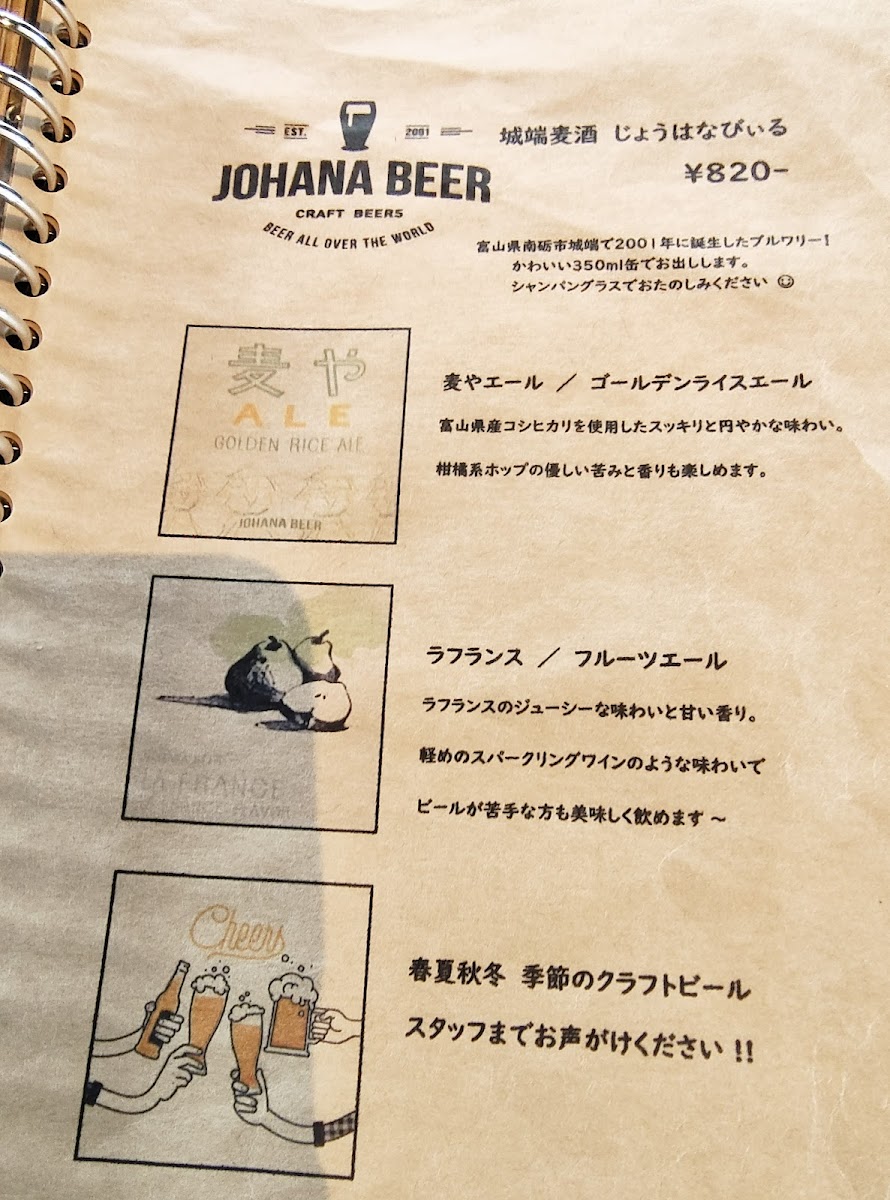 EST. 2001
JOHANA BEER
CRAFT BEERS
BEER ALL OVER THE WORLD
城端麦酒 じょうはなびぃる
¥820-
富山県南砺市城端で2001年に誕生したブルワリー!
かわいい350ml缶でお出しします。
シャンパングラスでおたのしみください ☺
麦や
ALE
GOLDEN RICE ALE
JOHANA BEER
麦やエール / ゴールデンライスエール
富山県産コシヒカリを使用したスッキリと円やかな味わい。
柑橘系ホップの優しい苦みと香りも楽しめます。
LA FRANCE
FLAVOR
ラフランス / フルーツエール
ラフランスのジューシーな味わいと甘い香り。
軽めのスパークリングワインのような味わいで
ビールが苦手な方も美味しく飲めます ~
Cheers
春夏秋冬 季節のクラフトビール
スタッフまでお声がけください !!